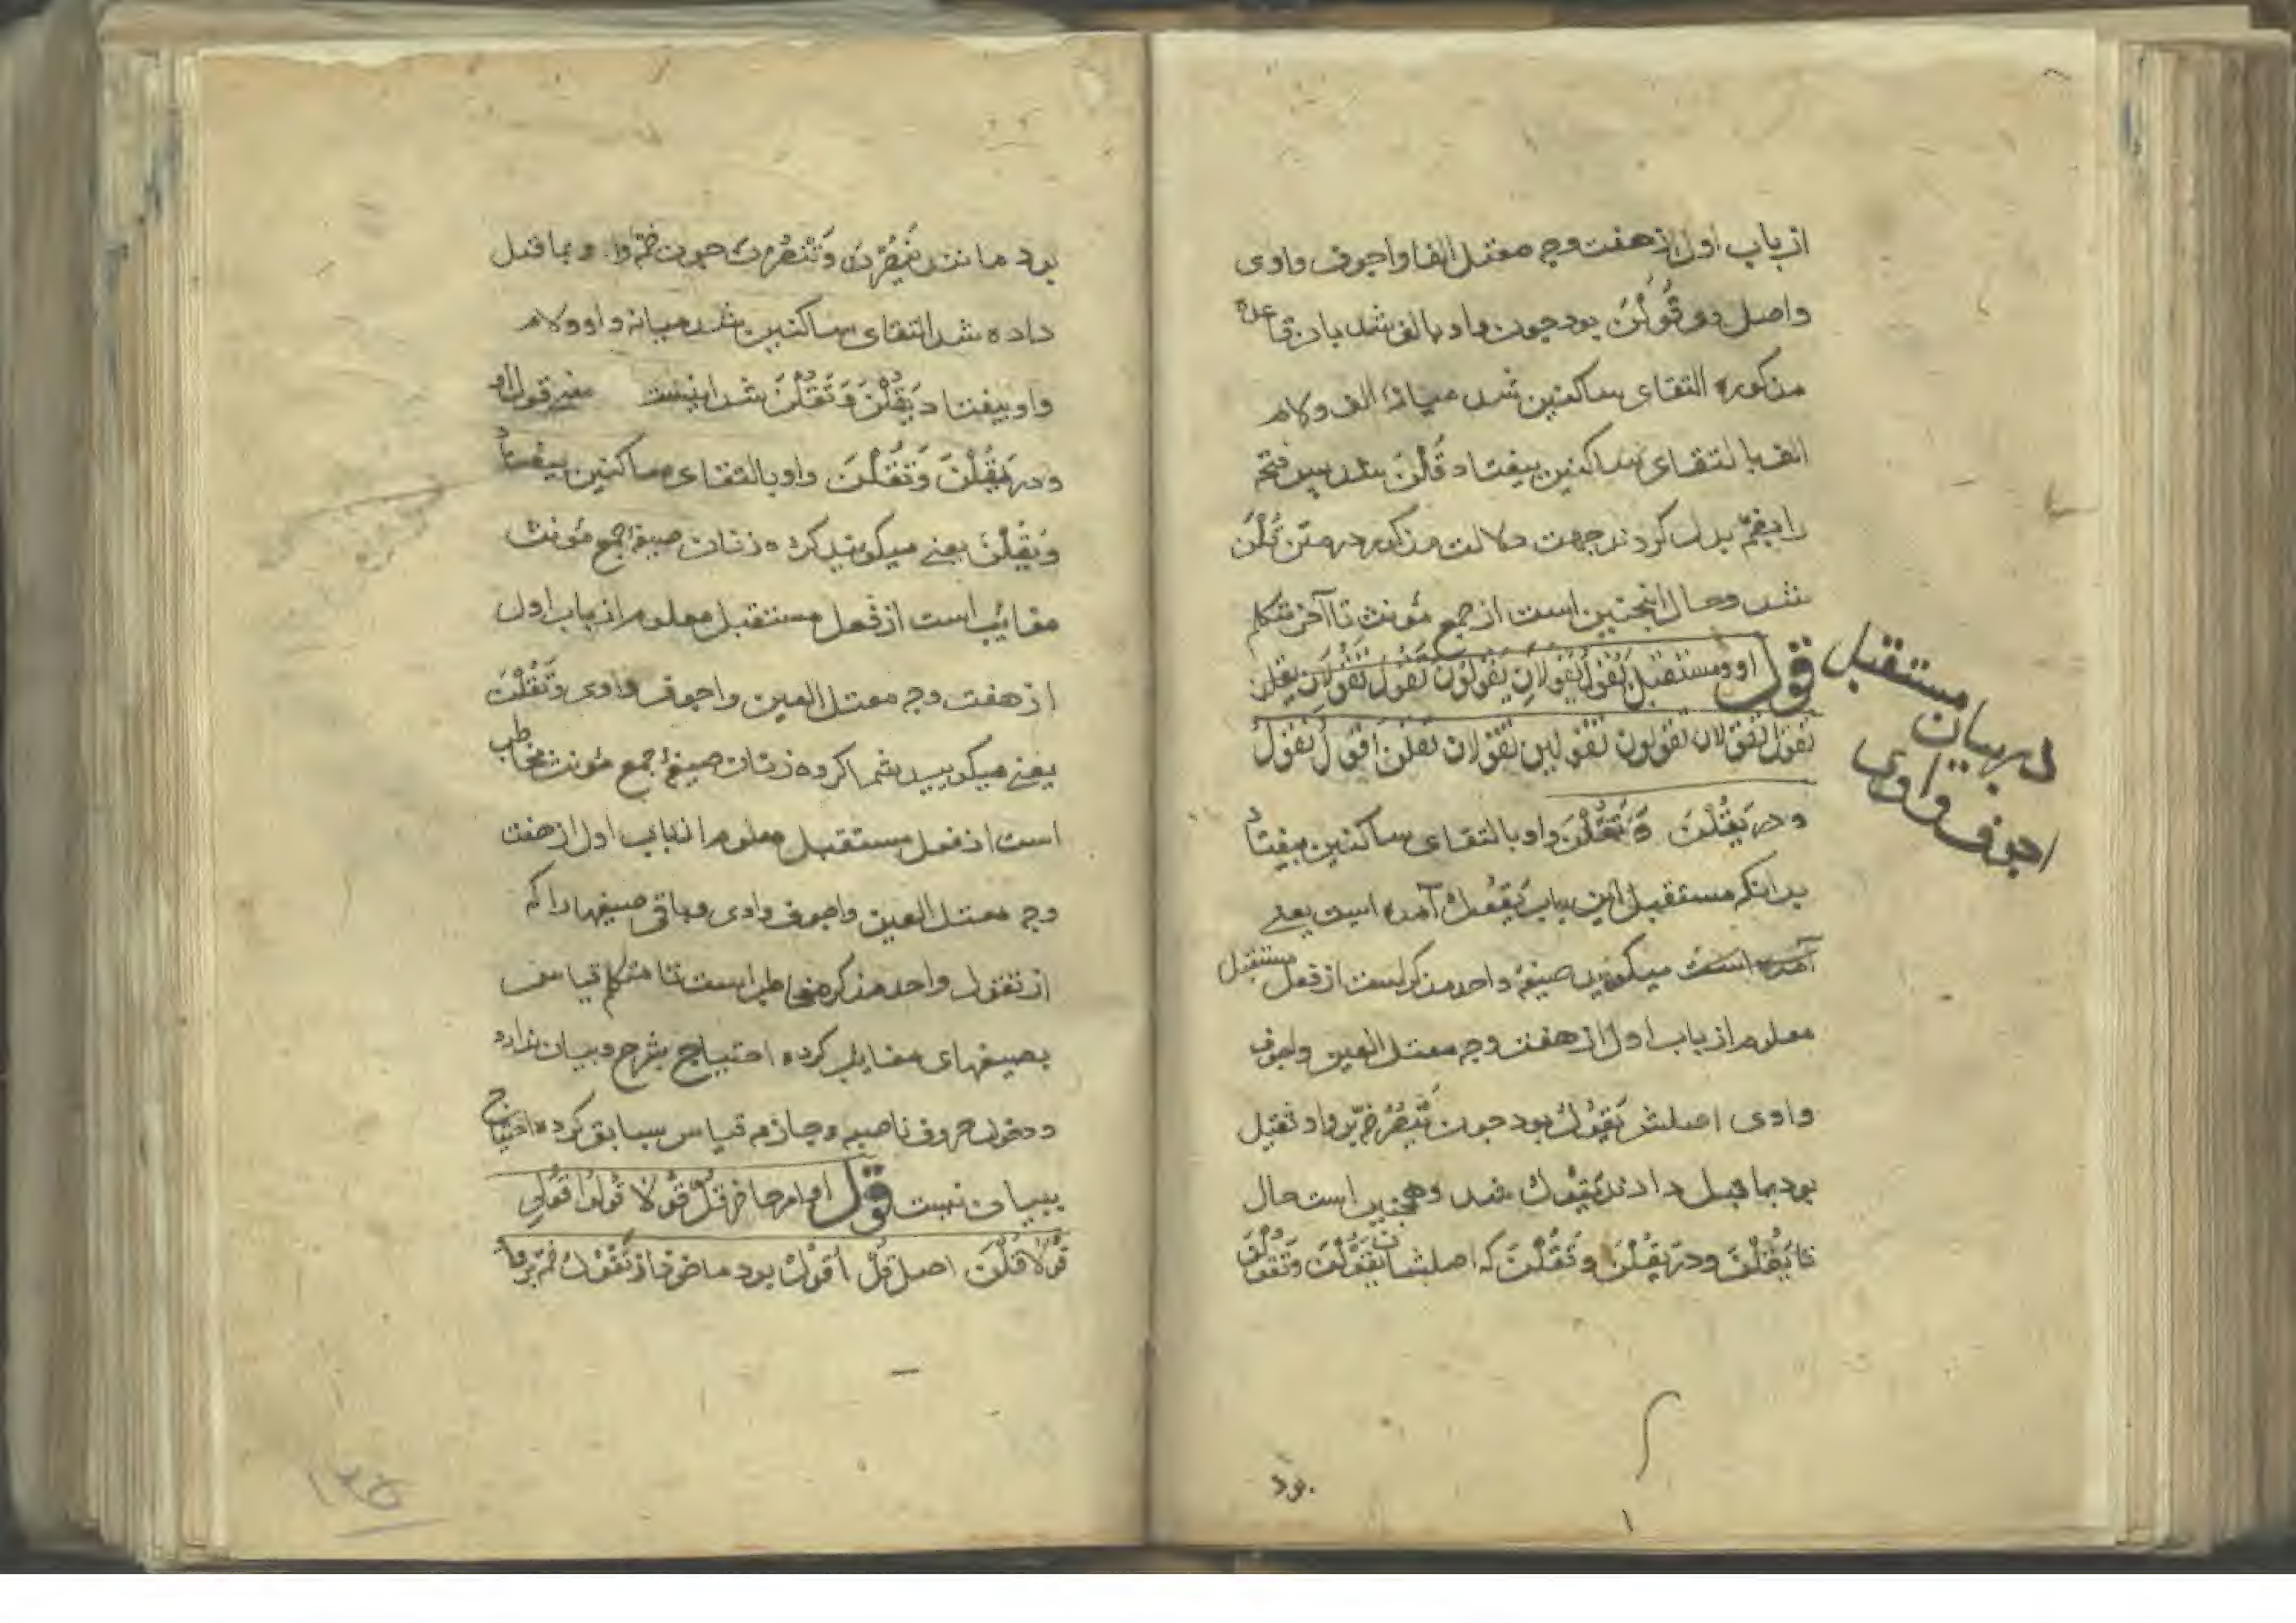 از باب اول از هفت وجه معتل الفا واجوف واوی
واصل دو قَوُلْنَ بود چون واو بالف شد بان قاعده
مذکوره التقای ساکنین شد میانه الف ولام
الف بالتقای ساکنین بیفتاد قَالْنَ شد پس فتحه
را بضمّ بدل کردند جهت دلالت مذکور در متن قُلْنَ
شد وحال اینچنین است از جمع مؤنث تا آخر متکلم
قول او ومستقبل یَقُولُ یَقُولَانِ یَقُولُونَ تَقُولُ تَقُولَانِ یَقُلْنَ
تَقُولُ تَقُولَانِ تَقُولُونَ تَقُولِینَ تَقُولَانِ تَقُلْنَ اَقُولُ نَقُولُ
در بیان مستقبل
اجوف واوی
ودر یَقُلْنَ وَتَقُلْنَ واو بالتقای ساکنین بیفتاد
بدانکه مستقبل این باب یَفْعُلُ آمده است یعنی
آمده است میگوید صیغهٔ واحد مذکر است از فعل مستقبل
معلوم از باب اول از هفت وجه معتل العین واجوف
واوی اصلش یَقْوُلُ بود چون یَنْصُرُ ضمّ بر واو ثقیل
بود بما قبل دادند یَقُولُ شد وهمچنین است حال
تا یَقُلْنَ ودر یَقُلْنَ وتَقُلْنَ که اصلشان یَقْوُلْنَ وتَقْوُلْنَ
بود
بود مانند یَنْصُرْنَ وَتَنْصُرْنَ چون ضمّ واو بما قبل
داده شد التقای ساکنین شد میانه واو ولام
واو بیفتاد یَقُلْنَ وَتَقُلْنَ شد اینست معنی قول او
ودر یَقُلْنَ وَتَقُلْنَ واو بالتقای ساکنین بیفتاد
وَیَقُلْنَ یعنی میگویند کرده زنان صیغهٔ جمع مؤنث
مغائب است از فعل مستقبل معلوم از باب اول
از هفت وجه معتل العین واجوف واوی وَتَقُلْنَ
یعنی میگویید شما کرده زنان صیغهٔ جمع مؤنث مخاطب
است از فعل مستقبل معلوم از باب اول از هفت
وجه معتل العین واجوف واوی وباقی صیغها را که
از تقول واحد مذکر مخاطب است تا متکلم قیاس
بصیغهای مغایب کرده احتیاج بشرح وبیان ندارد
ودخول حروف ناصبه وجازمه قیاس سابق کرده احتیاج
ببیان نیست قول او امر حاضر قُلْ قُولَا قُولُوا قُولِی
قُولَا قُلْنَ اصل قُلْ اُقْوُلْ بود ماخوذ از تَقْوُلُ ضمّ بر واو
۱۳۵